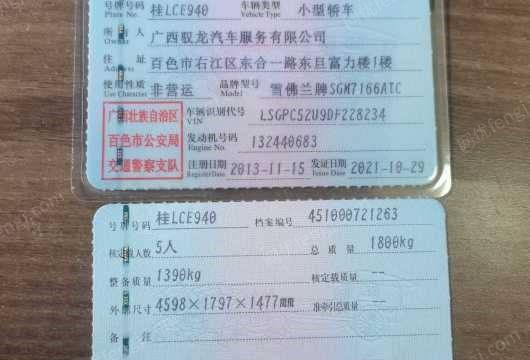 号牌号码 桂LCE940 车辆类型 小型轿车
Plate No. Vehicle Type
所有人 广西驭龙汽车服务有限公司
Owner
住址 百色市右江区东合一路东旦富力楼1楼
Address
使用性质 非营运 品牌型号 雪佛兰牌SGM7166ATC
Use Character Model
广西壮族自治区
百色市公安局
交通警察支队
车辆识别代号 LSGPC52U9DF228234
VIN
发动机号码 132440683
Engine No.
注册日期 2013-11-15 发证日期 2021-10-29
Register Date Issue Date
号牌号码 桂LCE940 档案编号 451000721263
核定载人数 5人 总质量 1800kg
整备质量 1390kg 核定载质量 --
外廓尺寸 4598×1797×1477mm 准牵引总质量 --
备注